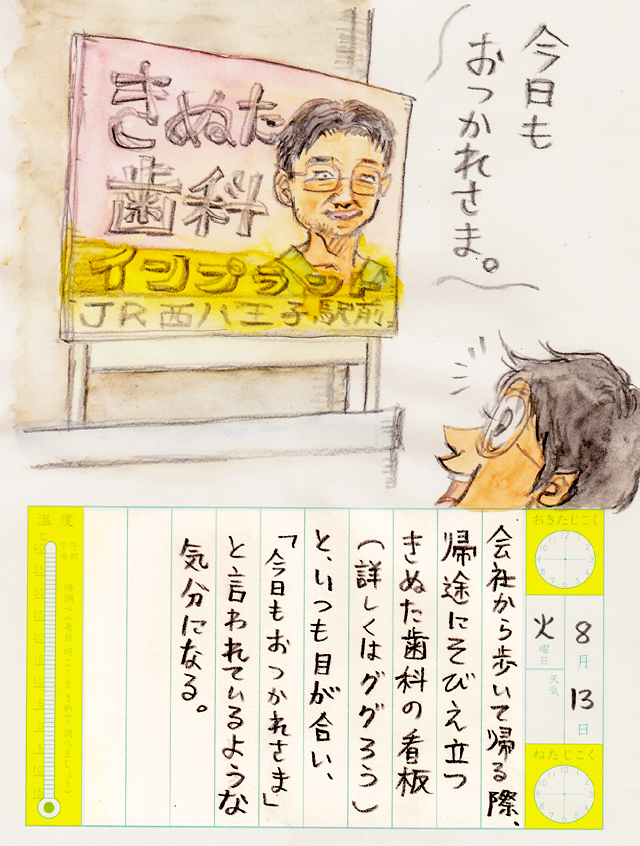 今日も
おつかれさま。
きぬた
歯科
インプラント
JR西八王子駅前
おきたじこく
8月13日
火曜日
天気
ねたじこく
会社から歩いて帰る際、
帰途にそびえ立つ
きぬた歯科の看板
(詳しくはググろう)
と、いつも目が合い、
「今日もおつかれさま」
と言われているような
気分になる。
温度
午前
午後